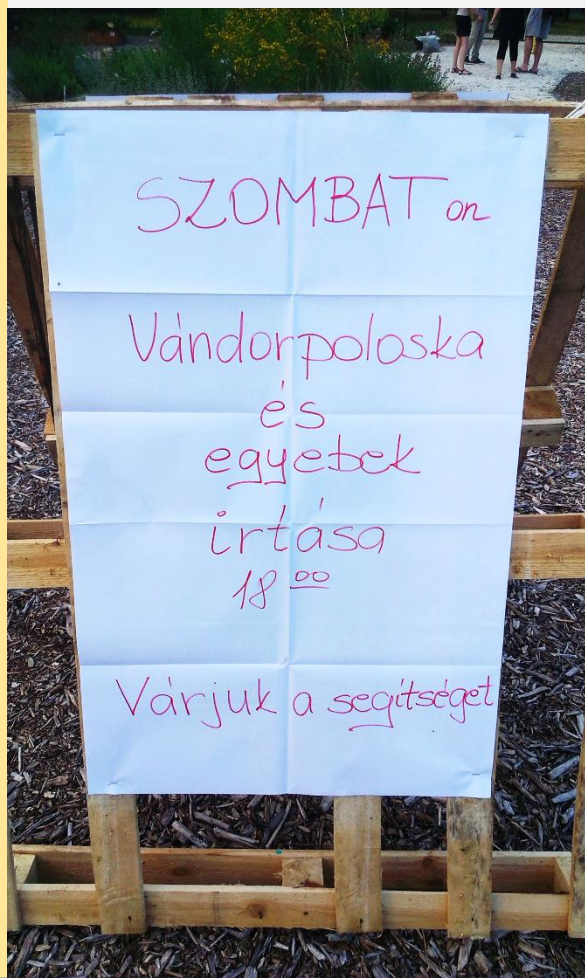 SZOMBAT on
Vándorpoloska
és
egyebek
irtása
18 00
Várjuk a segítséget